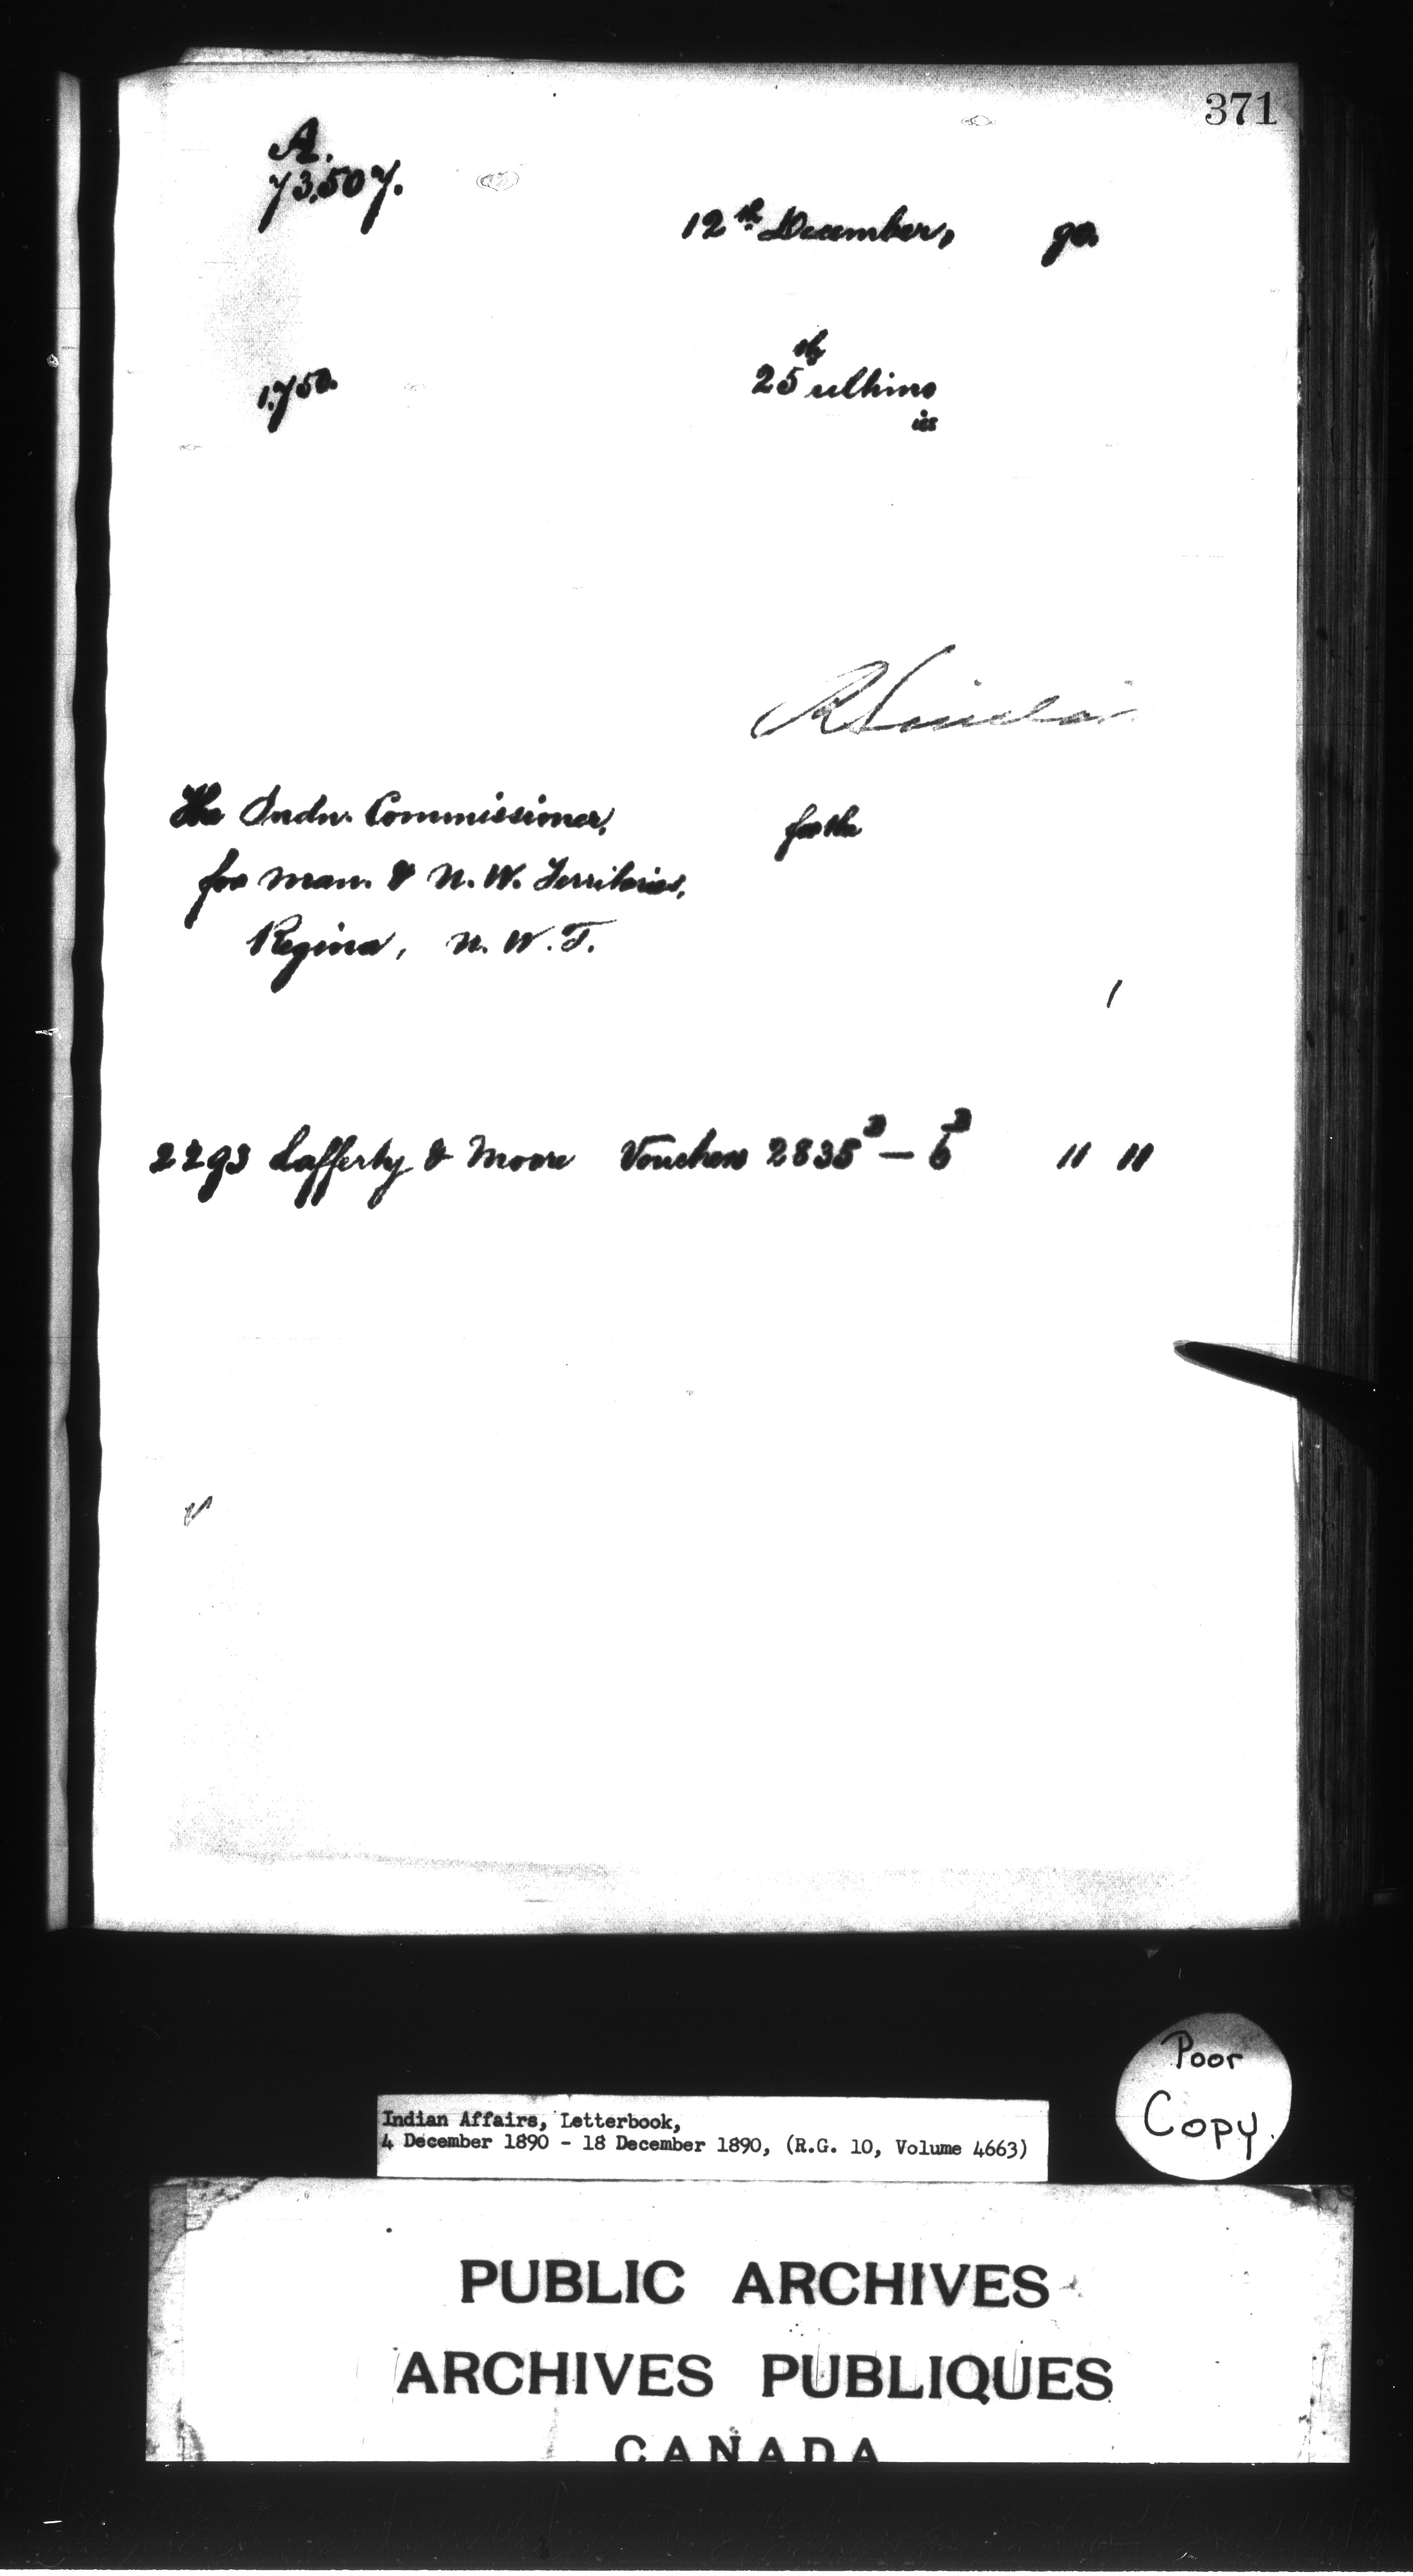 371
A.
73,507.
12th December, 90.
1,750.
25th ultimo
is
R Sinclair
The Indn. Commissioner,
for the
for Man. & N. W. Territories,
Regina, N. W. T.
2293 Lafferty & Moore Vouchers 2835 — 6 " "
Poor
Copy.
Indian Affairs, Letterbook,
4 December 1890 - 18 December 1890, (R.G. 10, Volume 4663)
PUBLIC ARCHIVES
ARCHIVES PUBLIQUES
CANADA